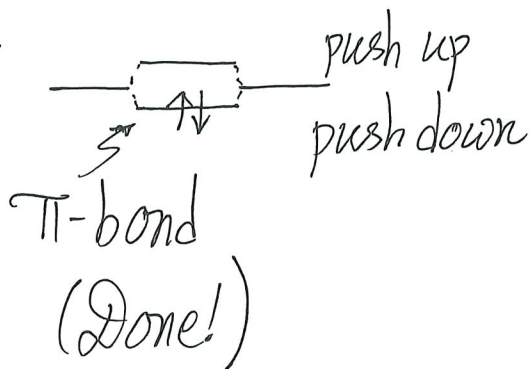 push up
push down
π-bond
(Done!)